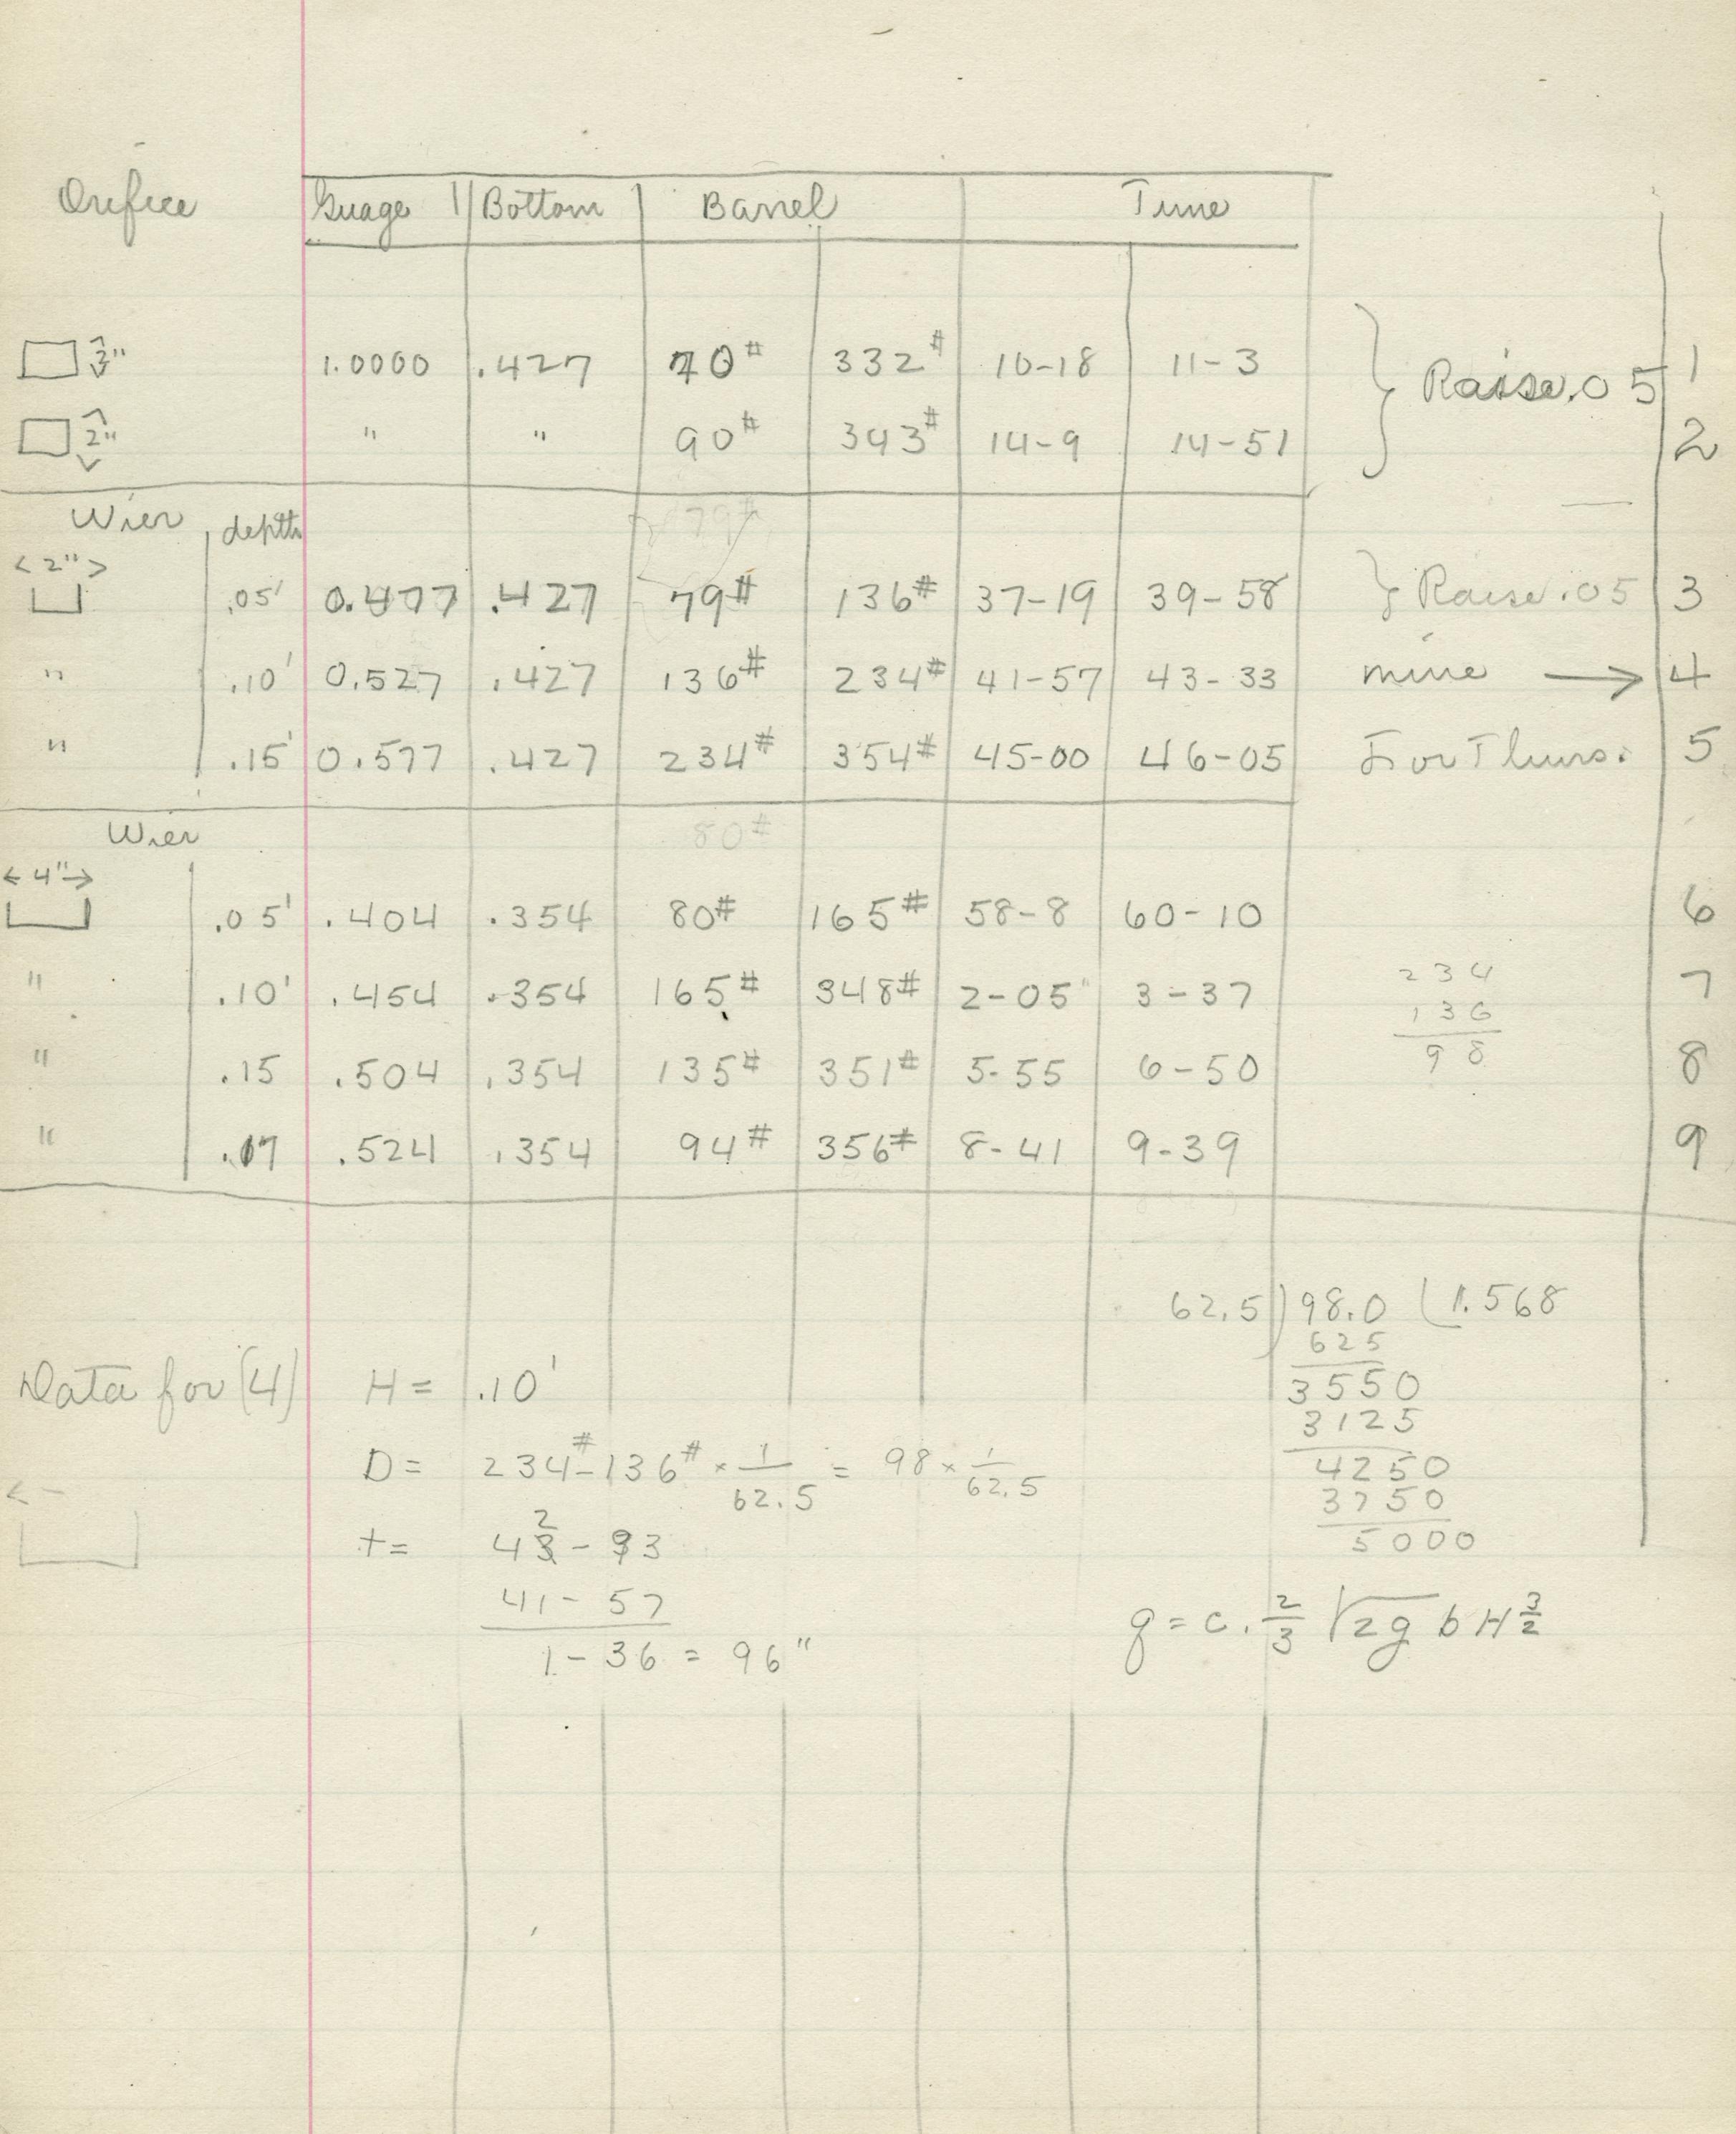 Orifice Guage Bottom Barrel Time
3" 1.0000 .427 70# 332# 10-18 11-3 Raise .05 1
2" " " 90# 343# 14-9 14-51 2
Wier depth 79#
<2"> .05' 0.477 .427 79# 136# 37-19 39-58 } Raise .05 3
" .10' 0.527 .427 136# 234# 41-57 43-33 mine → 4
" .15' 0.577 .427 234# 354# 45-00 46-05 For Thurs. 5
Wier 80#
←4"→ .05' .404 .354 80# 165# 58-8 60-10 6
" .10' .454 .354 165# 348# 2-05 3-37 7
" .15 .504 .354 135# 351# 5-55 6-50 8
" .17 .524 .354 94# 356# 8-41 9-39 9
234
136
98
62.5)98.0(1.568
625
3550
3125
4250
3750
5000
Data for (4) H = .10'
D = 234# - 136# × 1/62.5 = 98 × 1/62.5
t = 42 - 93
41 - 57
1 - 36 = 96"
q = c. 2/3 √2g b H 3/2